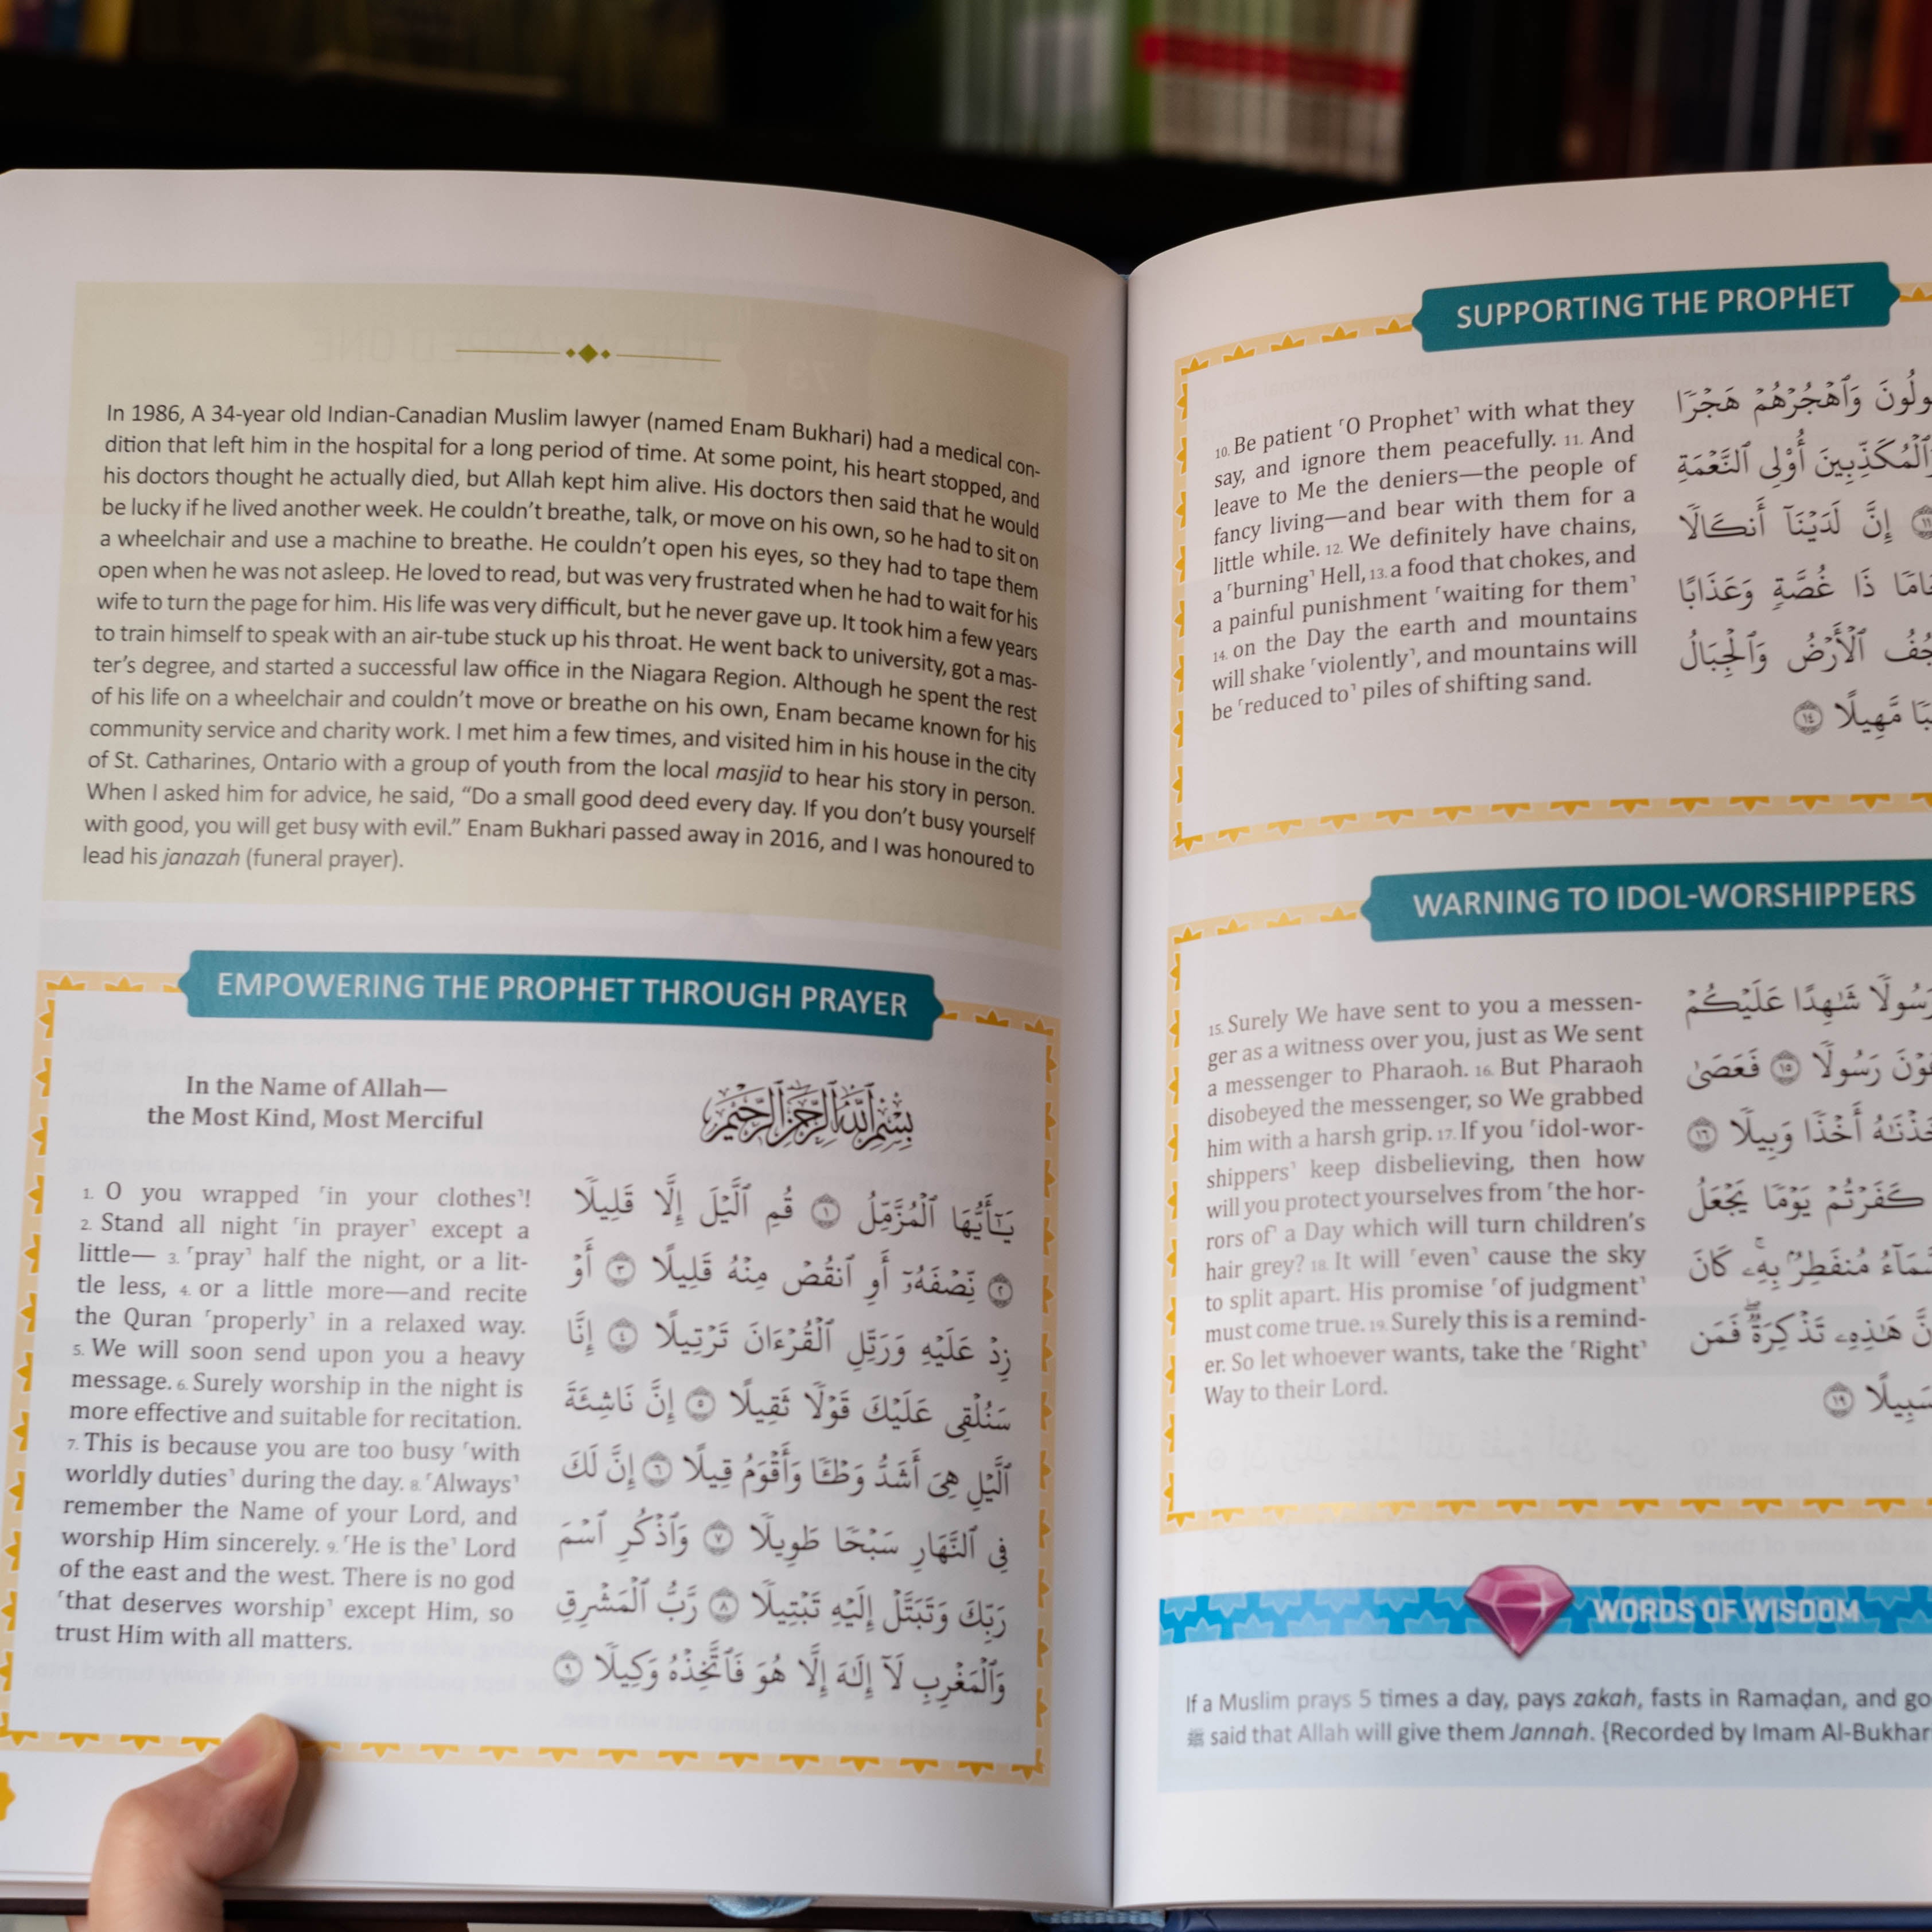 In 1986, A 34-year old Indian-Canadian Muslim lawyer (named Enam Bukhari) had a medical con-
dition that left him in the hospital for a long period of time. At some point, his heart stopped, and
his doctors thought he actually died, but Allah kept him alive. His doctors then said that he would
be lucky if he lived another week. He couldn’t breathe, talk, or move on his own, so he had to sit on
a wheelchair and use a machine to breathe. He couldn’t open his eyes, so they had to tape them
open when he was not asleep. He loved to read, but was very frustrated when he had to wait for his
wife to turn the page for him. His life was very difficult, but he never gave up. It took him a few years
to train himself to speak with an air-tube stuck up his throat. He went back to university, got a mas-
ter’s degree, and started a successful law office in the Niagara Region. Although he spent the rest
of his life on a wheelchair and couldn’t move or breathe on his own, Enam became known for his
community service and charity work. I met him a few times, and visited him in his house in the city
of St. Catharines, Ontario with a group of youth from the local masjid to hear his story in person.
When I asked him for advice, he said, “Do a small good deed every day. If you don’t busy yourself
with good, you will get busy with evil.” Enam Bukhari passed away in 2016, and I was honoured to
lead his janazah (funeral prayer).
EMPOWERING THE PROPHET THROUGH PRAYER
In the Name of Allah—
the Most Kind, Most Merciful
1. O you wrapped ˹in your clothes˺!
2. Stand all night ˹in prayer˺ except a
little— 3. ˹pray˺ half the night, or a lit-
tle less, 4. or a little more—and recite
the Quran ˹properly˺ in a relaxed way.
5. We will soon send upon you a heavy
message. 6. Surely worship in the night is
more effective and suitable for recitation.
7. This is because you are too busy ˹with
worldly duties˺ during the day. 8. ˹Always˺
remember the Name of your Lord, and
worship Him sincerely. 9. ˹He is the˺ Lord
of the east and the west. There is no god
˹that deserves worship˺ except Him, so
trust Him with all matters.
بِسْمِ ٱللَّهِ ٱلرَّحْمَٰنِ ٱلرَّحِيمِ
يَـٰٓأَيُّهَا ٱلْمُزَّمِّلُ ١ قُمِ ٱلَّيْلَ إِلَّا قَلِيلًا
٢ نِّصْفَهُۥٓ أَوِ ٱنقُصْ مِنْهُ قَلِيلًا ٣ أَوْ
زِدْ عَلَيْهِ وَرَتِّلِ ٱلْقُرْءَانَ تَرْتِيلًا ٤ إِنَّا
سَنُلْقِى عَلَيْكَ قَوْلًا ثَقِيلًا ٥ إِنَّ نَاشِئَةَ
ٱلَّيْلِ هِىَ أَشَدُّ وَطْـًٔا وَأَقْوَمُ قِيلًا ٦ إِنَّ لَكَ
فِى ٱلنَّهَارِ سَبْحًا طَوِيلًا ٧ وَٱذْكُرِ ٱسْمَ
رَبِّكَ وَتَبَتَّلْ إِلَيْهِ تَبْتِيلًا ٨ رَّبُّ ٱلْمَشْرِقِ
وَٱلْمَغْرِبِ لَآ إِلَـٰهَ إِلَّا هُوَ فَٱتَّخِذْهُ وَكِيلًا ٩
SUPPORTING THE PROPHET
10. Be patient ˹O Prophet˺ with what they
say, and ignore them peacefully. 11. And
leave to Me the deniers—the people of
fancy living—and bear with them for a
little while. 12. We definitely have chains,
a ˹burning˺ Hell, 13. a food that chokes, and
a painful punishment ˹waiting for them˺
14. on the Day the earth and mountains
will shake ˹violently˺, and mountains will
be ˹reduced to˺ piles of shifting sand.
وَٱهْجُرْهُمْ هَجْرًا
وَٱلْمُكَذِّبِينَ أُو۟لِى ٱلنَّعْمَةِ
١١ إِنَّ لَدَيْنَآ أَنكَالًا
ذَا غُصَّةٍ وَعَذَابًا
ٱلْأَرْضُ وَٱلْجِبَالُ
مَّهِيلًا ١٤
WARNING TO IDOL-WORSHIPPERS
15. Surely We have sent to you a messen-
ger as a witness over you, just as We sent
a messenger to Pharaoh. 16. But Pharaoh
disobeyed the messenger, so We grabbed
him with a harsh grip. 17. If you ˹idol-wor-
shippers˺ keep disbelieving, then how
will you protect yourselves from ˹the hor-
rors of˺ a Day which will turn children’s
hair grey? 18. It will ˹even˺ cause the sky
to split apart. His promise ˹of judgment˺
must come true. 19. Surely this is a remind-
er. So let whoever wants, take the ˹Right˺
Way to their Lord.
رَسُولًا شَـٰهِدًا عَلَيْكُمْ
رَسُولًا ١٥ فَعَصَىٰ
أَخْذًا وَبِيلًا ١٦
كَفَرْتُمْ يَوْمًا يَجْعَلُ
مُنفَطِرٌۢ بِهِۦ ۚ كَانَ
هَـٰذِهِۦ تَذْكِرَةٌ ۖ فَمَن
سَبِيلًا ١٩
WORDS OF WISDOM
If a Muslim prays 5 times a day, pays zakah, fasts in Ramaḍan, and go
ﷺ said that Allah will give them Jannah. {Recorded by Imam Al-Bukhar